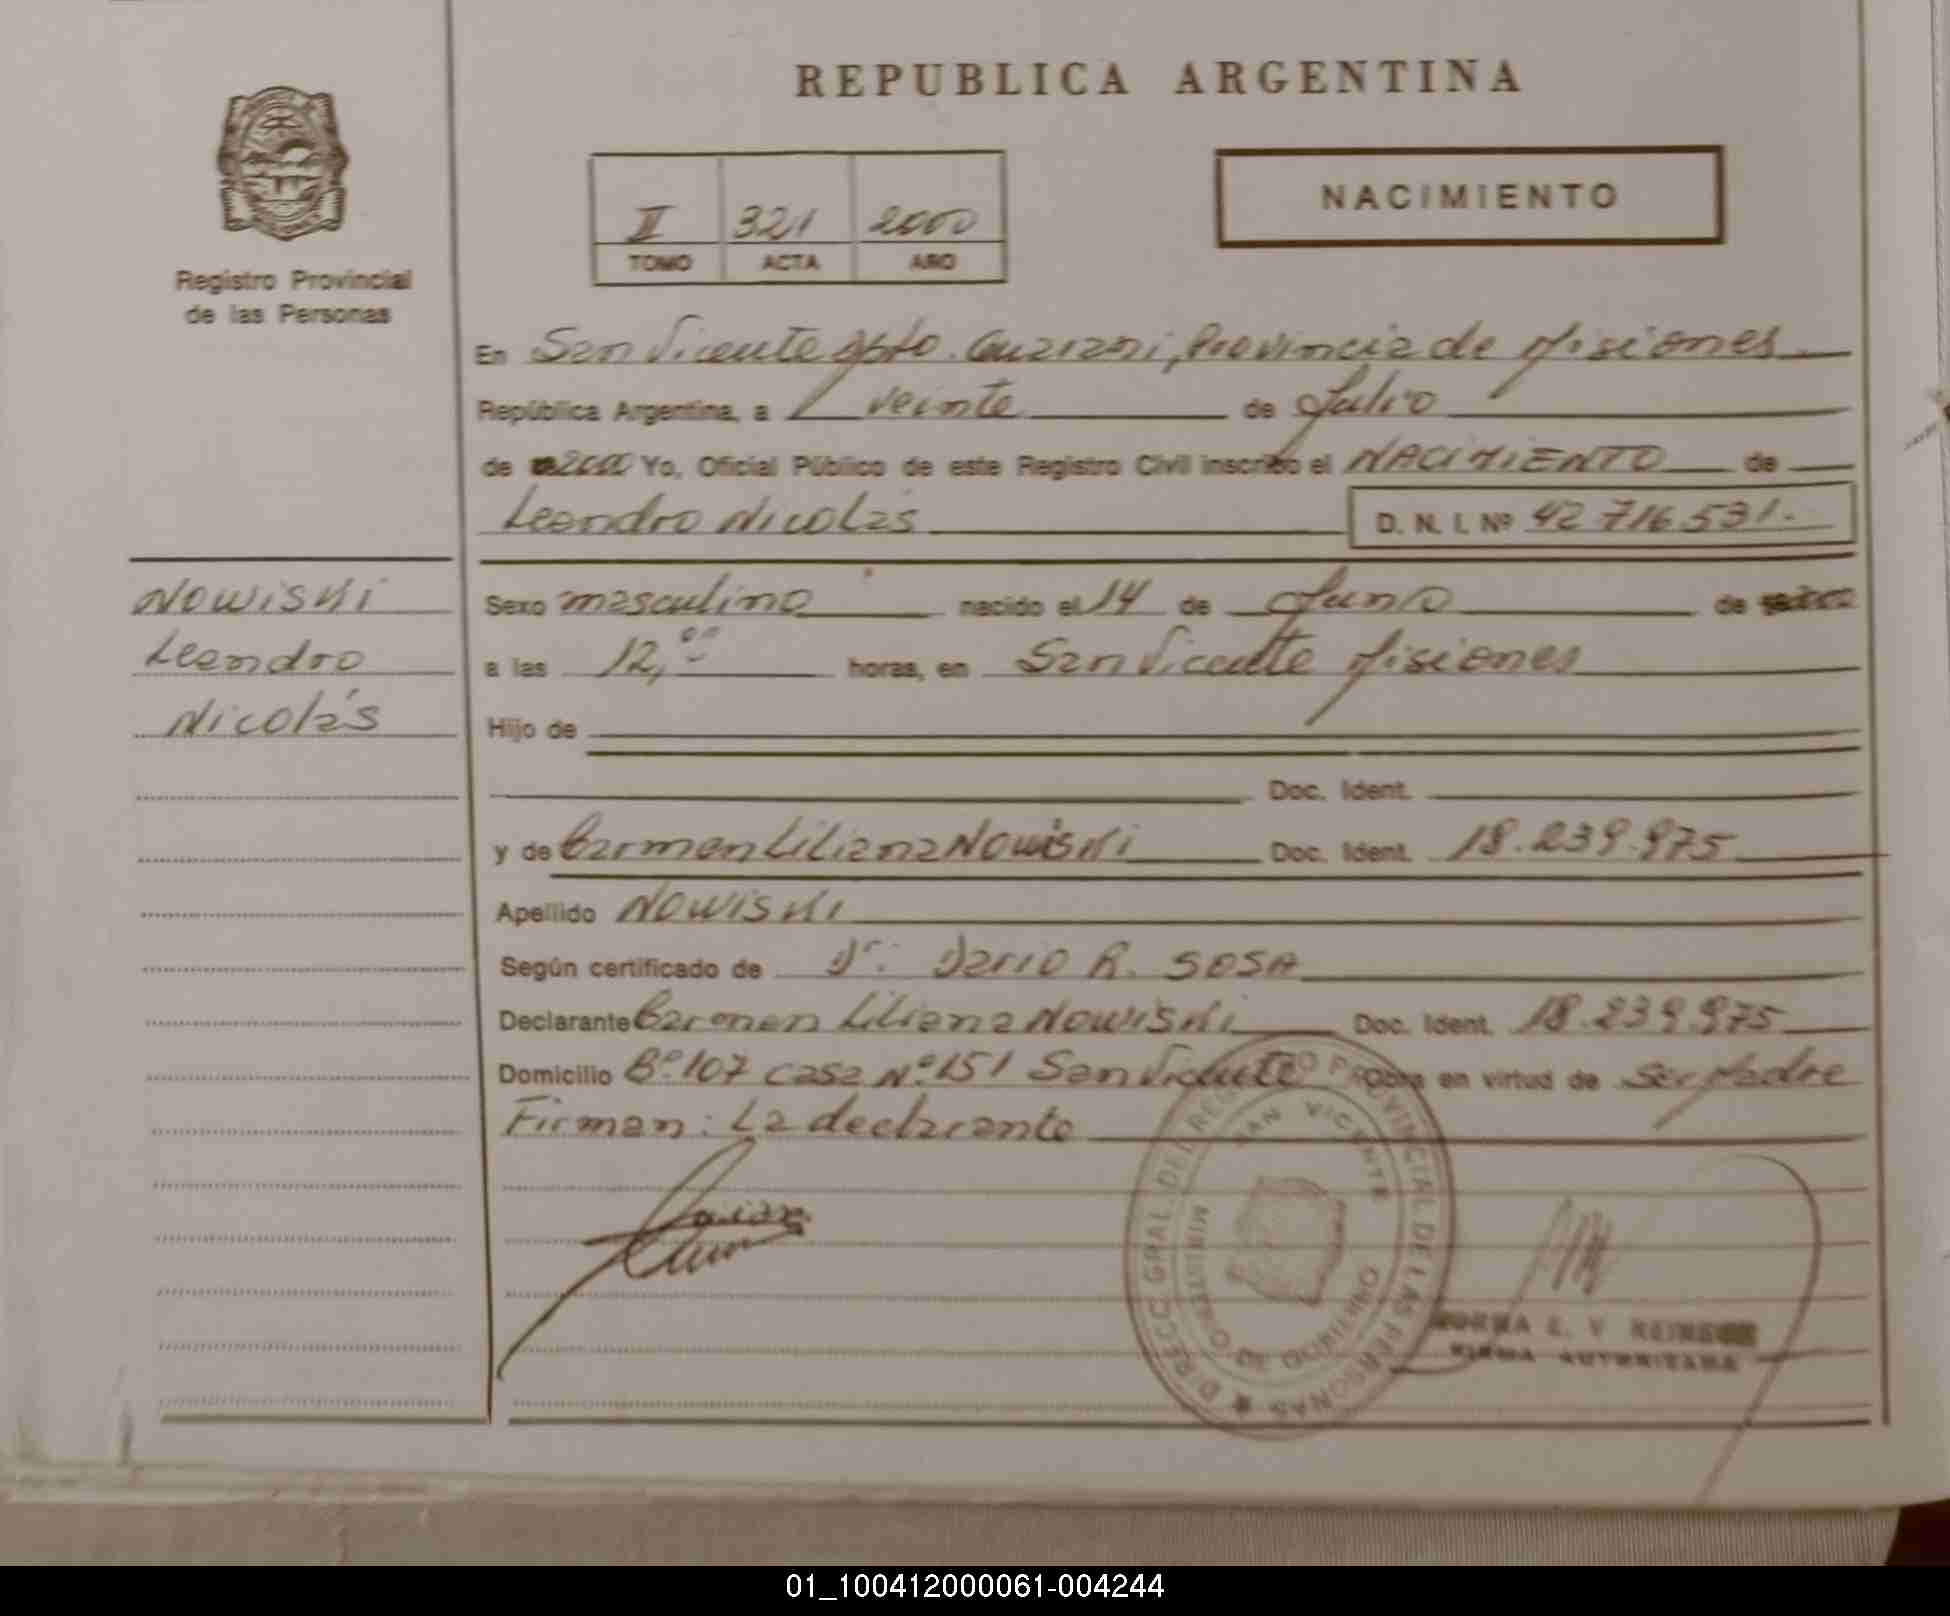 REPUBLICA ARGENTINA
NACIMIENTO
II 321 2000
TOMO ACTA AÑO
Registro Provincial
de las Personas
En San Vicente Dpto. Guarani, Provincia de Misiones
República Argentina, a veinte de Julio
de 2000 Yo, Oficial Público de este Registro Civil inscribo el NACIMIENTO de
Leandro Nicolás D. N. I. Nº 42 716 531.
Nowiski
Leandro
Nicolás
Sexo masculino nacido el 14 de Junio de
a las 12,00 horas, en San Vicente Misiones
Hijo de
Doc. Ident.
y de Carmen Liliana Nowiski Doc. Ident. 18.239.975
Apellido Nowiski
Según certificado de Dr. Dario R. SOSA
Declarante Carmen Liliana Nowiski Doc. Ident. 18.239.975
Domicilio Bº 107 casa Nº 151 San Vicente Obra en virtud de ser Madre
Firman: La declarante
DIRECC. GRAL DEL REGISTRO PROVINCIAL DE LAS PERSONAS
SAN VICENTE
MINISTERIO DE GOBIERNO
NORMA E. V.
FIRMA AUTORIZADA
01_100412000061-004244